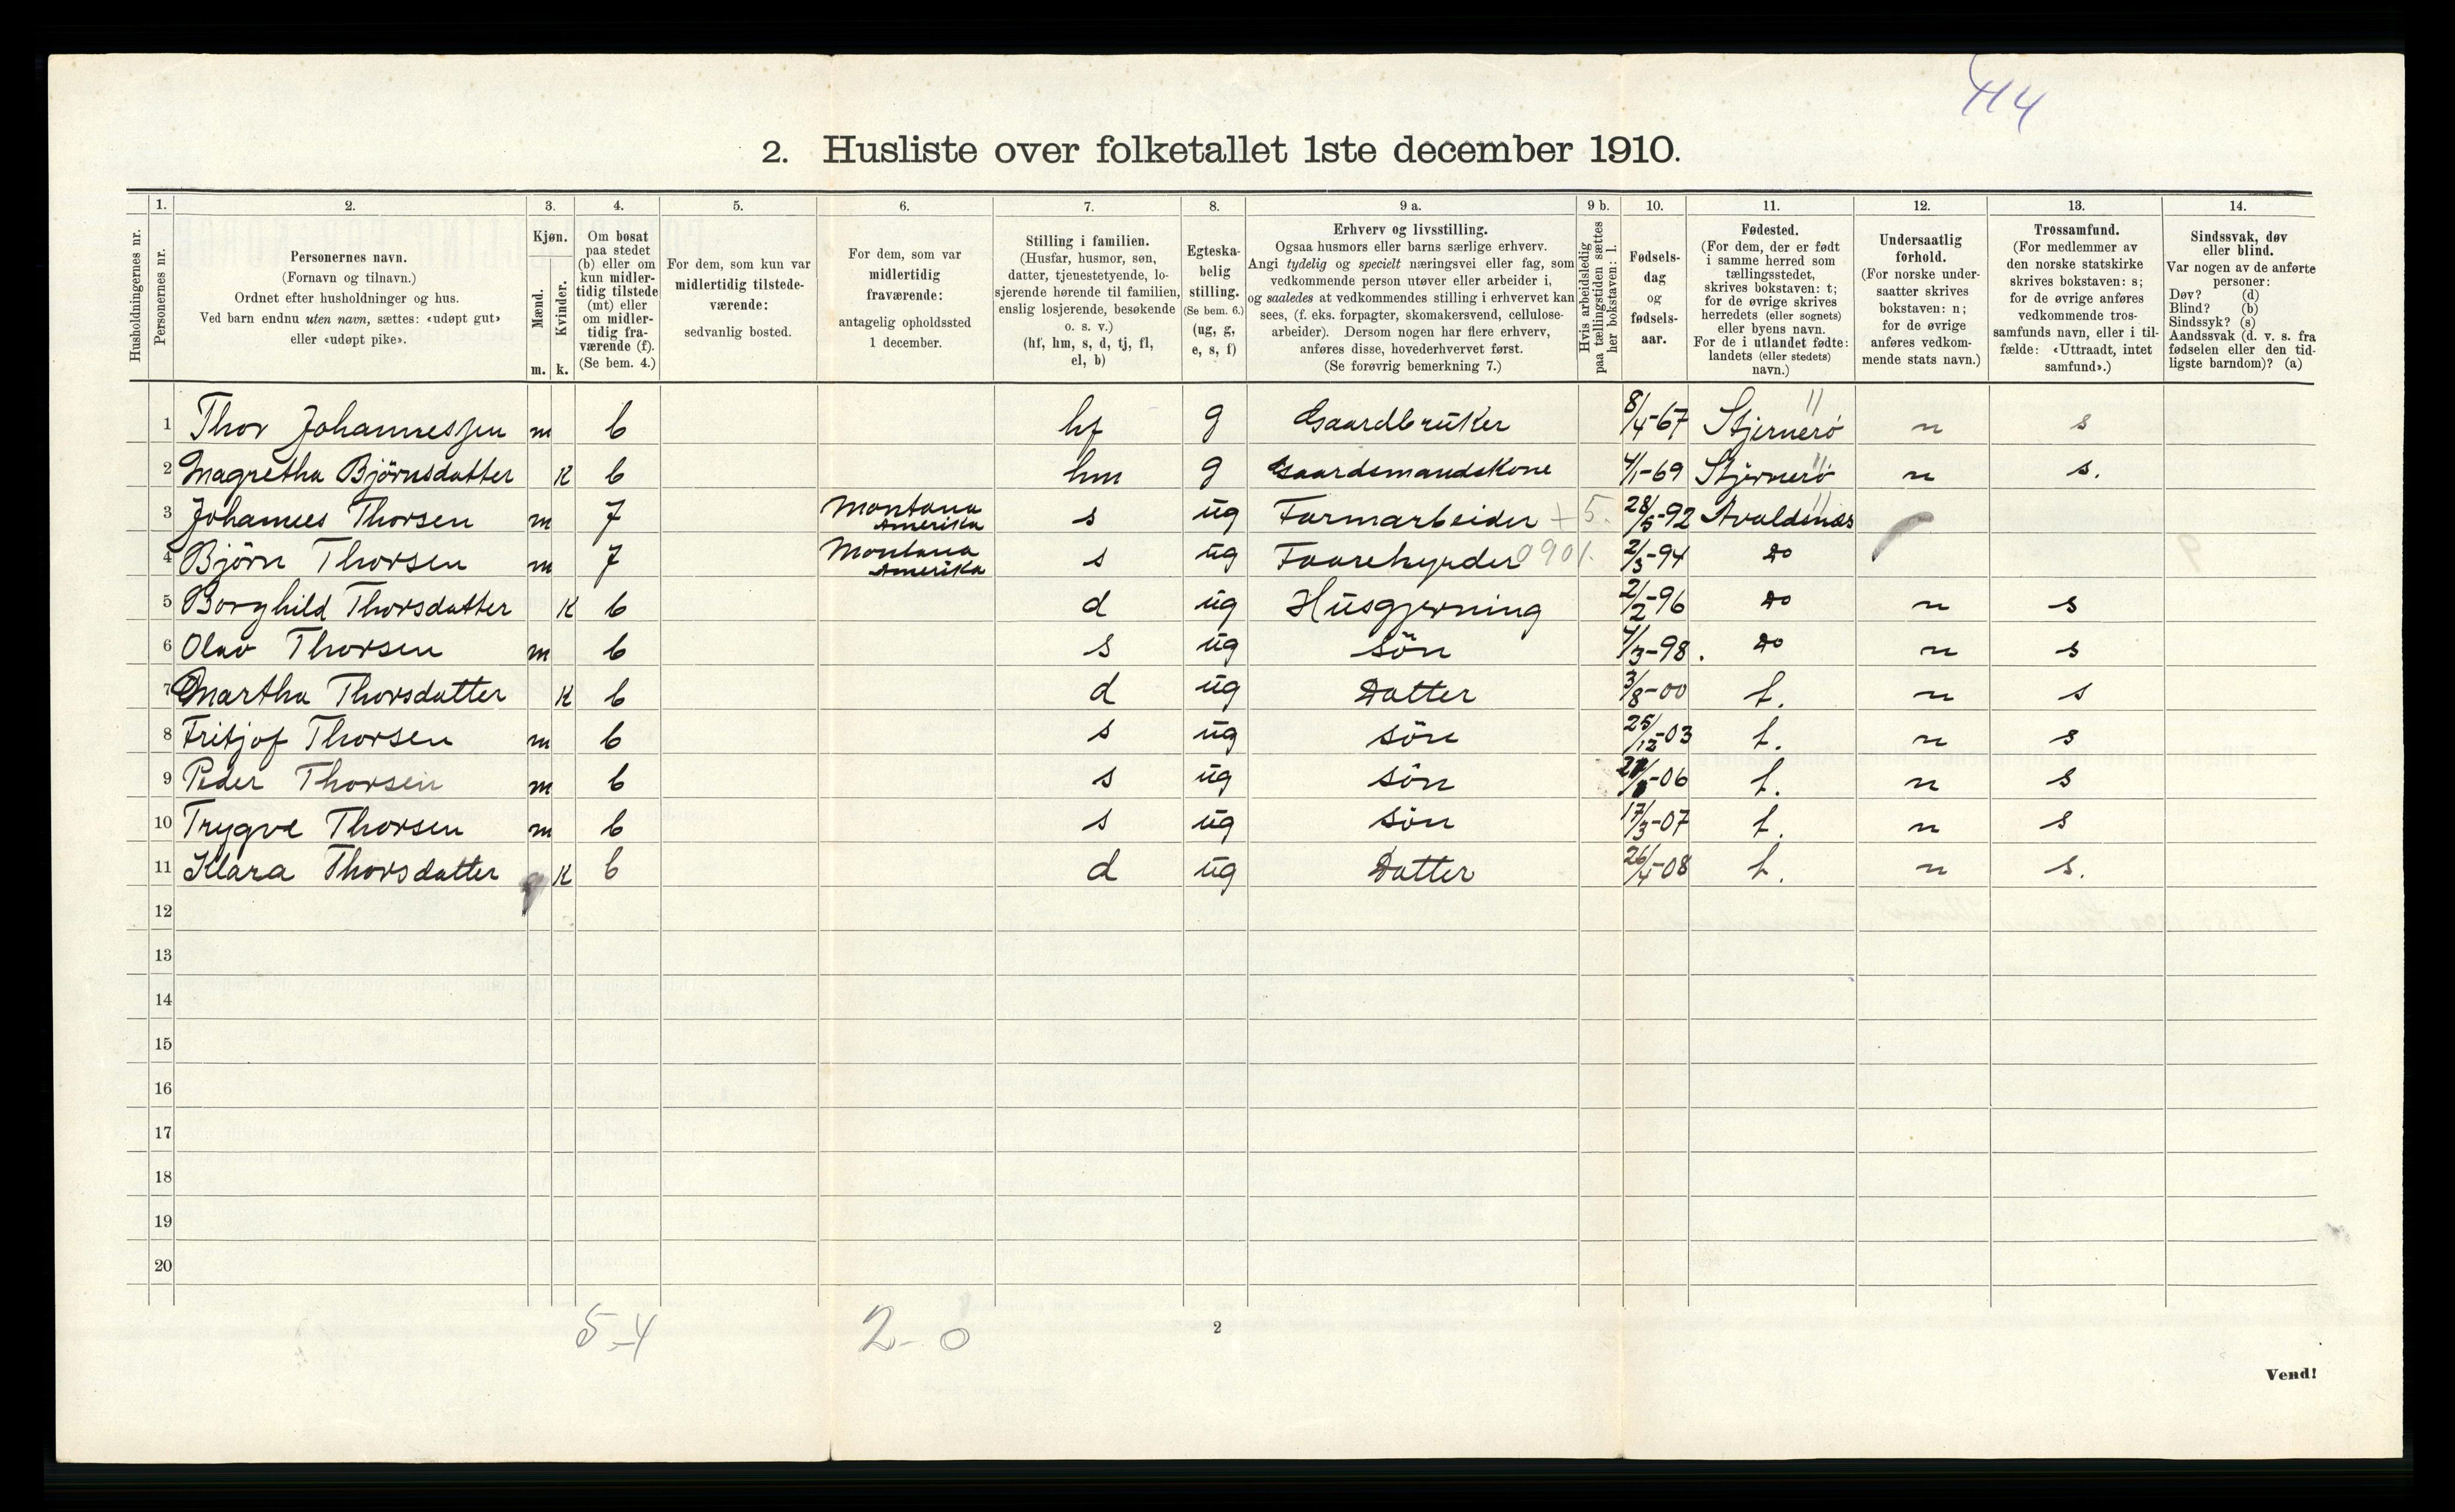 414
2. Husliste over folketallet 1ste december 1910.
Husholdningernes nr.
1.
Personernes nr.
2.
Personernes navn.
(Fornavn og tilnavn.)
Ordnet efter husholdninger og hus.
Ved barn endnu uten navn, sættes: «udøpt gut»
eller «udøpt pike».
3.
Kjøn.
Mænd.
Kvinder.
m. k.
4.
Om bosat
paa stedet
(b) eller om
kun midler-
tidig tilstede
(mt) eller
om midler-
tidig fra-
værende (f).
(Se bem. 4.)
5.
For dem, som kun var
midlertidig tilstede-
værende:
sedvanlig bosted.
6.
For dem, som var
midlertidig
fraværende:
antagelig opholdssted
1 december.
7.
Stilling i familien.
(Husfar, husmor, søn,
datter, tjenestetyende, lo-
sjerende hørende til familien,
enslig losjerende, besøkende
o. s. v.)
(hf, hm, s, d, tj, fl,
el, b)
8.
Egteska-
belig
stilling.
(Se bem. 6.)
(ug, g,
e, s, f)
9 a.
Erhverv og livsstilling.
Ogsaa husmors eller barns særlige erhverv.
Angi tydelig og specielt næringsvei eller fag, som
vedkommende person utøver eller arbeider i,
og saaledes at vedkommendes stilling i erhvervet kan
sees, (f. eks. forpagter, skomakersvend, cellulose-
arbeider). Dersom nogen har flere erhverv,
anføres disse, hovederhvervet først.
(Se forøvrig bemerkning 7.)
9 b.
Hvis arbeidsledig
paa tællingstiden sættes
her bokstaven: l.
10.
Fødsels-
dag
og
fødsels-
aar.
11.
Fødested.
(For dem, der er født
i samme herred som
tællingsstedet,
skrives bokstaven: t;
for de øvrige skrives
herredets (eller sognets)
eller byens navn.
For de i utlandet fødte:
landets (eller stedets)
navn.)
12.
Undersaatlig
forhold.
(For norske under-
saatter skrives
bokstaven: n;
for de øvrige
anføres vedkom-
mende stats navn.)
13.
Trossamfund.
(For medlemmer av
den norske statskirke
skrives bokstaven: s;
for de øvrige anføres
vedkommende tros-
samfunds navn, eller i til-
fælde: «Uttraadt, intet
samfund».)
14.
Sindssvak, døv
eller blind.
Var nogen av de anførte
personer:
Døv? (d)
Blind? (b)
Sindssyk? (s)
Aandssvak (d. v. s. fra
fødselen eller den tid-
ligste barndom)? (a)
1 Thor Johannessen m b hf g Gaardbruker 8/4-67 Stjernerø n s
2 Magretha Björnsdatter K b hm g Gaardsmandskone 4/1-69 Stjernerø n s.
3 Johannes Thorsen m f Montana Amerika s ug Farmarbeider + 5. 28/5-92 Avaldsnæs
4 Björn Thorsen m f Montana Amerika s ug Faarehyrder 0901. 2/3-94 Do
5 Borghild Thorsdatter K b d ug Husgjerning 2/2-96 Do n s
6 Olav Thorsen m b s ug Sön 4/3-98. Do n s
7 Martha Thorsdatter K b d ug Datter 3/8-00 t. n s
8 Fritjof Thorsen m b s ug Sön 25/12-03 t. n s
9 Peder Thorsen m b s ug Sön -06 t. n s
10 Trygve Thorsen m b s ug Sön 17/3-07 t. n s
11 Klara Thorsdatter K b d ug Datter 26/4-08 t. n s.
12
13
14
15
16
17
18
19
20
5-4
2-0
2
Vend!